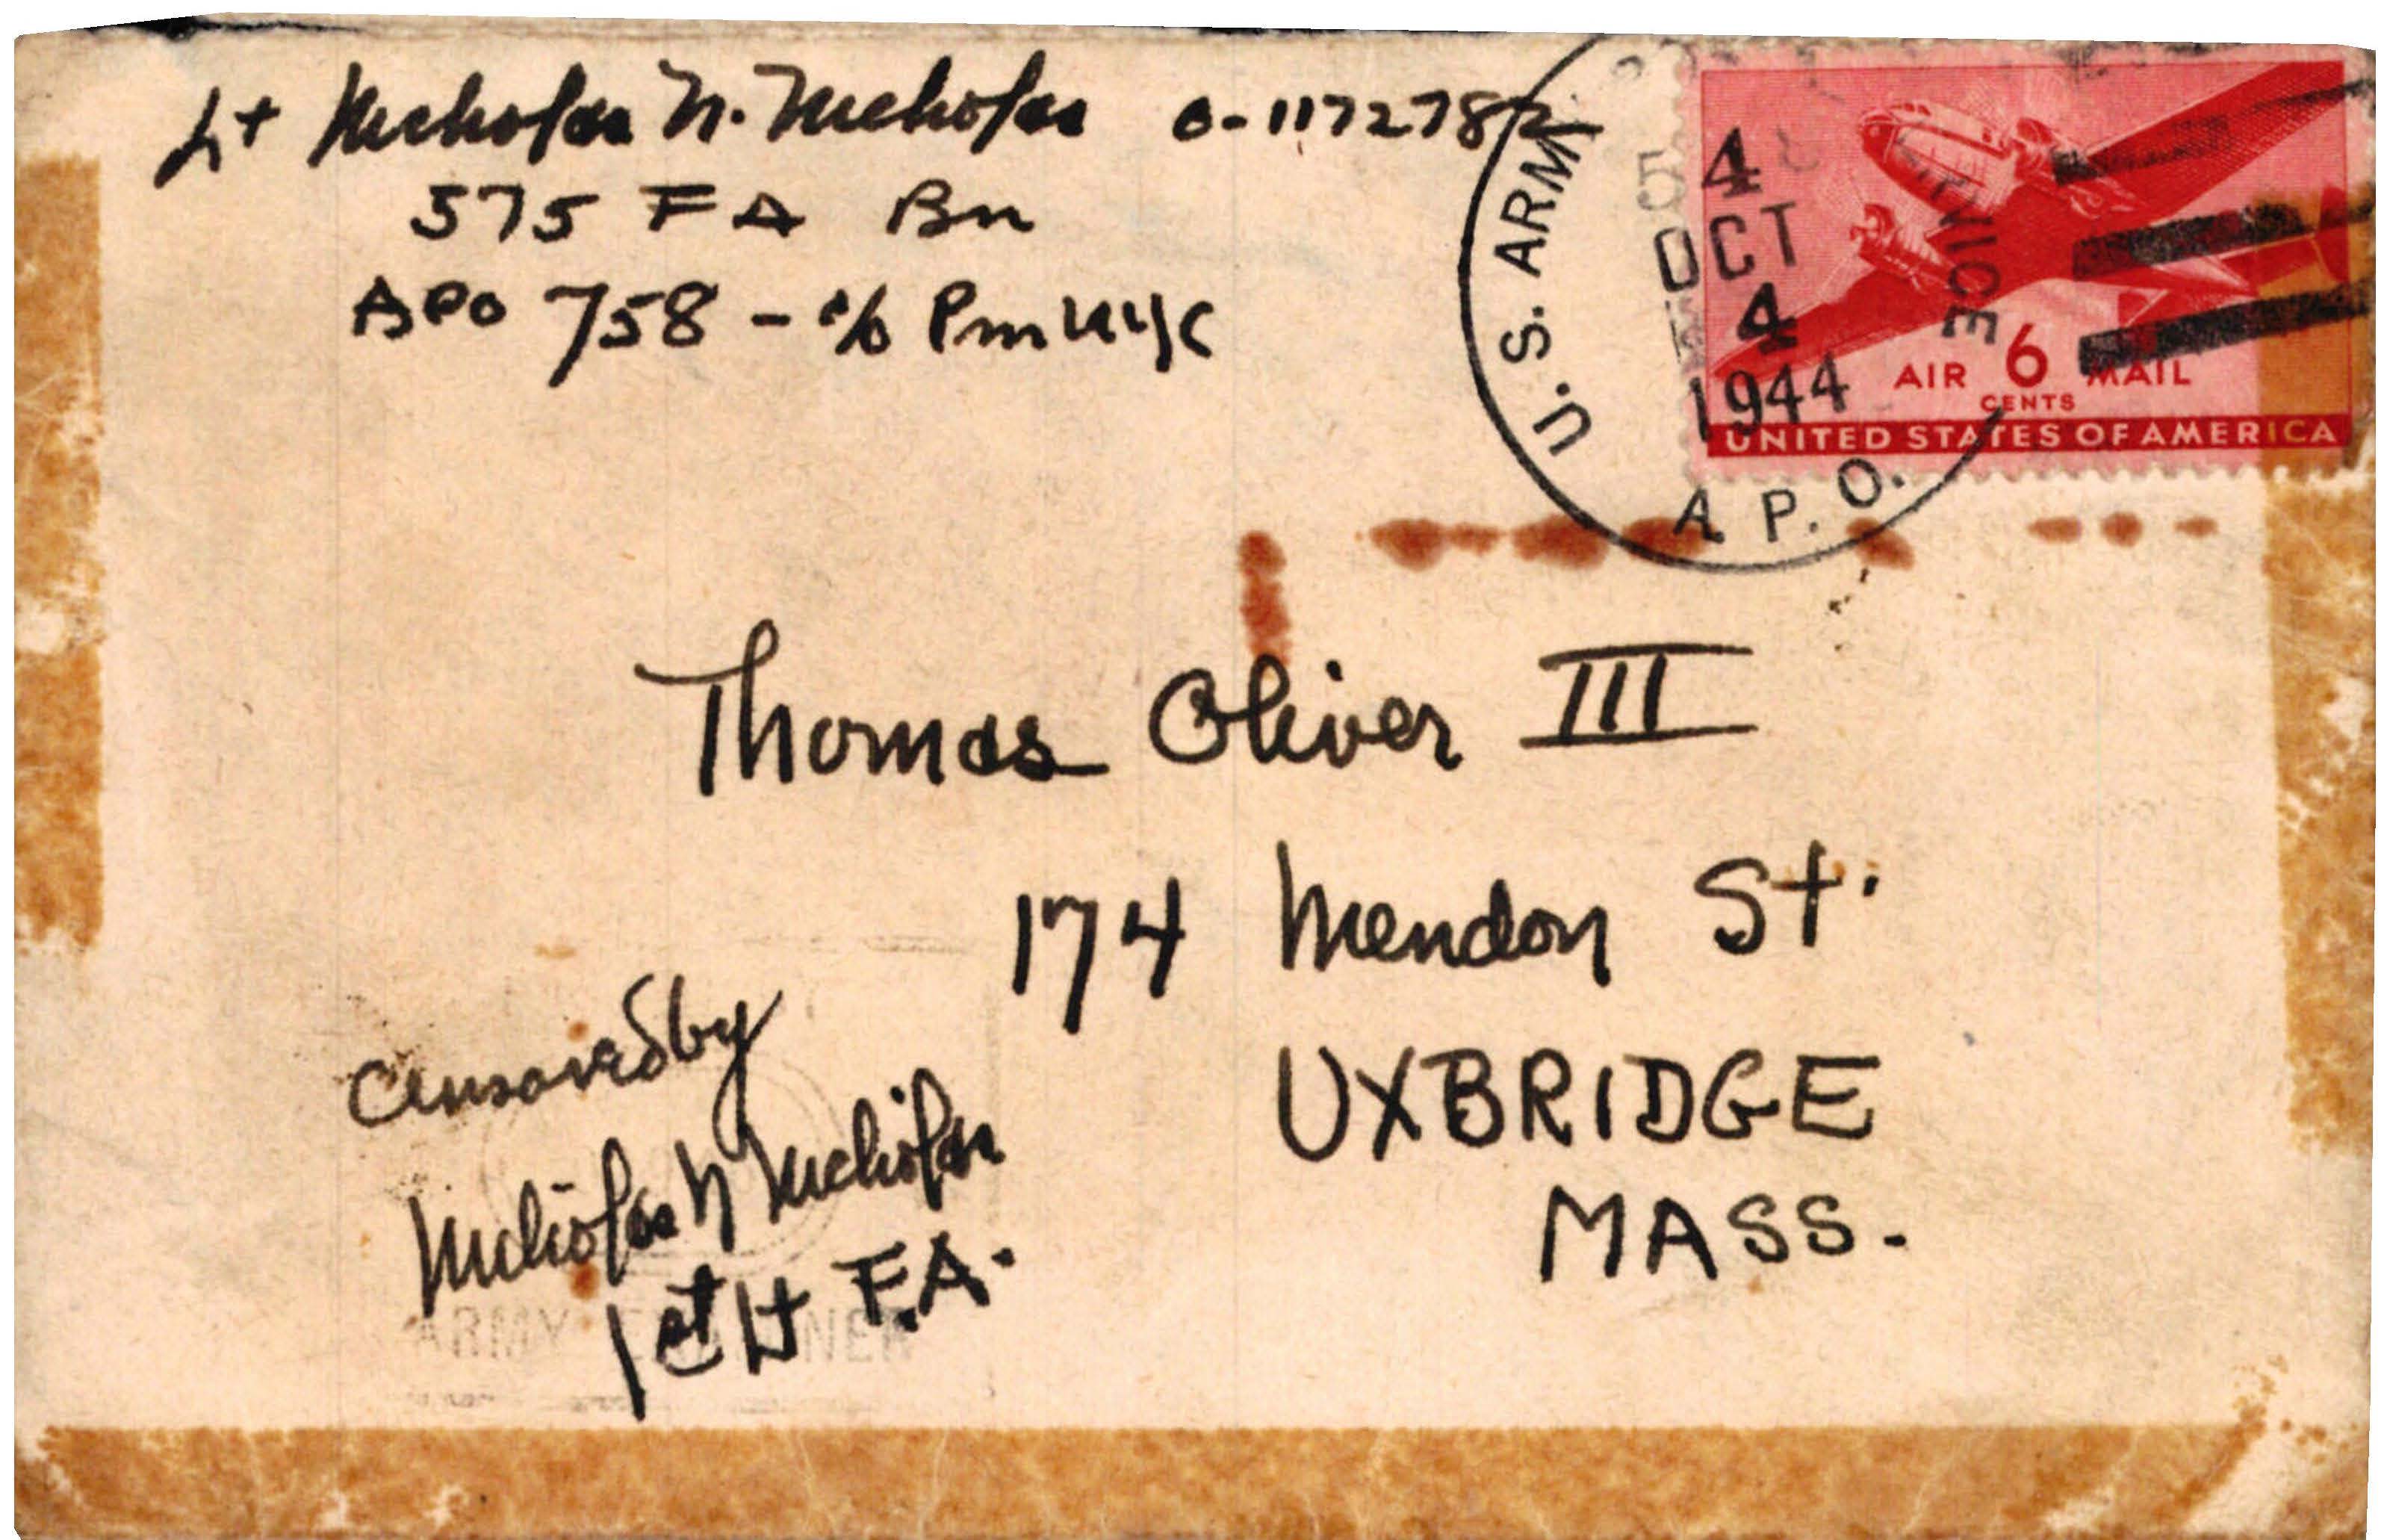 Lt Nicholas N. Nicholas O-1172782
575 FA Bn
APO 758 - c/o Pm NYC
U.S. ARMY
A.P.O.
4
OCT
4
1944
AIR 6 MAIL
CENTS
UNITED STATES OF AMERICA
Thomas Oliver III
174 Mendon St.
UXBRIDGE
MASS.
Censored by
Nicholas N Nicholas
1st Lt F.A.
ARMY EXAMINER